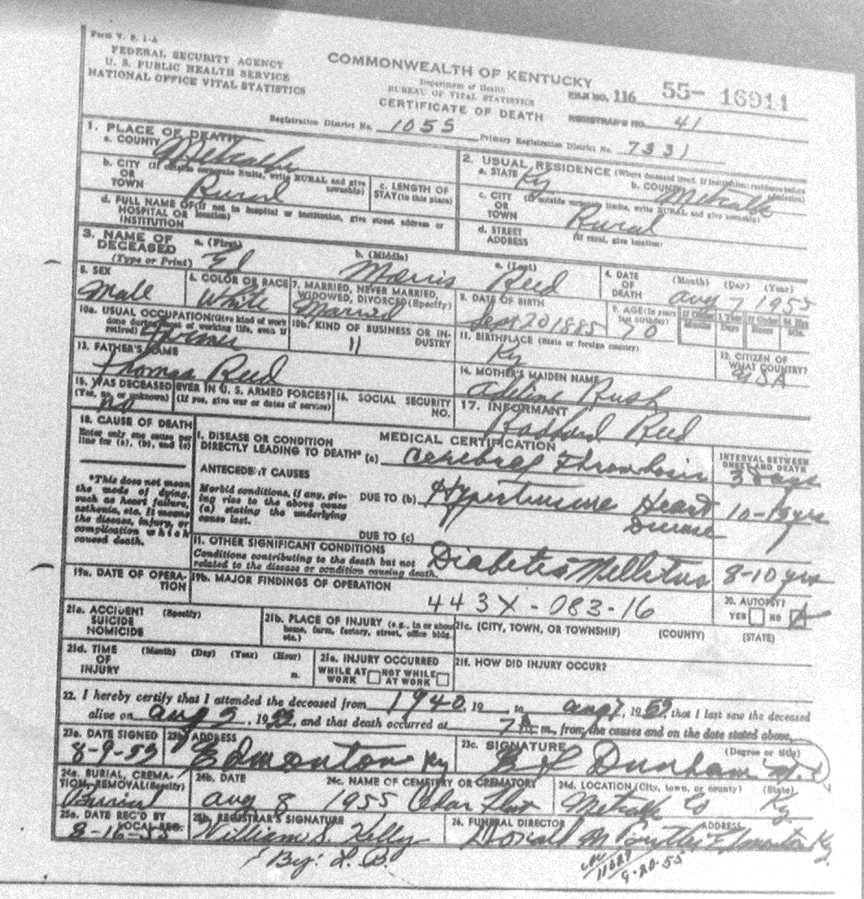 Form V. S. 1-A
FEDERAL SECURITY AGENCY
U. S. PUBLIC HEALTH SERVICE
NATIONAL OFFICE VITAL STATISTICS
COMMONWEALTH OF KENTUCKY
Department of Health
BUREAU OF VITAL STATISTICS
CERTIFICATE OF DEATH
FILE NO. 116 55- 16911
REGISTRAR'S NO. 41
Registration District No. 1055 Primary Registration District No. 7331
1. PLACE OF DEATH
a. COUNTY Metcalfe
b. CITY (If outside corporate limits, write RURAL and give township)
OR
TOWN Rural
c. LENGTH OF STAY (in this place)
d. FULL NAME OF (If not in hospital or institution, give street address or location)
HOSPITAL OR
INSTITUTION
2. USUAL RESIDENCE (Where deceased lived. If institution: residence before admission)
a. STATE Ky b. COUNTY Metcalfe
c. CITY (If outside corporate limits, write RURAL and give township)
OR
TOWN Rural
d. STREET ADDRESS (If rural, give location)
3. NAME OF DECEASED (Type or Print)
a. (First) Ed b. (Middle) Morris c. (Last) Reed
4. DATE OF DEATH (Month) (Day) (Year) Aug 7 1955
5. SEX Male
6. COLOR OR RACE White
7. MARRIED, NEVER MARRIED, WIDOWED, DIVORCED (Specify) Married
8. DATE OF BIRTH Sept 20 1885
9. AGE (In years last birthday) 70
If Under 1 Year Months Days If Under 24 Hrs. Hours Min.
10a. USUAL OCCUPATION (Give kind of work done during most of working life, even if retired) Farmer
10b. KIND OF BUSINESS OR INDUSTRY 11
11. BIRTHPLACE (State or foreign country) Ky
12. CITIZEN OF WHAT COUNTRY? USA
13. FATHER'S NAME Thomas Reed
14. MOTHER'S MAIDEN NAME Adeline Rush
15. WAS DECEASED EVER IN U. S. ARMED FORCES?
(Yes, no, or unknown) (If yes, give war or dates of service) no
16. SOCIAL SECURITY NO.
17. INFORMANT Reed
18. CAUSE OF DEATH
Enter only one cause per line for (a), (b), and (c)
*This does not mean the mode of dying, such as heart failure, asthenia, etc. It means the disease, injury, or complication which caused death.
MEDICAL CERTIFICATION
INTERVAL BETWEEN ONSET AND DEATH
I. DISEASE OR CONDITION DIRECTLY LEADING TO DEATH* (a) Cerebral Thrombosis 3 days
ANTECEDENT CAUSES
Morbid conditions, if any, giving rise to the above cause (a) stating the underlying cause last.
DUE TO (b) Hypertensive Heart Disease 10-15 yrs
DUE TO (c)
II. OTHER SIGNIFICANT CONDITIONS
Conditions contributing to the death but not related to the disease or condition causing death. Diabetes Mellitus 8-10 yrs
19a. DATE OF OPERATION
19b. MAJOR FINDINGS OF OPERATION
443X-083-16
20. AUTOPSY? YES NO
21a. ACCIDENT SUICIDE HOMICIDE (Specify)
21b. PLACE OF INJURY (e.g., in or about home, farm, factory, street, office bldg. etc.)
21c. (CITY, TOWN, OR TOWNSHIP) (COUNTY) (STATE)
21d. TIME OF INJURY (Month) (Day) (Year) (Hour) m.
21e. INJURY OCCURRED WHILE AT WORK NOT WHILE AT WORK
21f. HOW DID INJURY OCCUR?
22. I hereby certify that I attended the deceased from 1940, 19 to Aug 7, 1955, that I last saw the deceased
alive on Aug 5, 1955, and that death occurred at 7 A m., from the causes and on the date stated above.
23a. DATE SIGNED 8-9-55
23b. ADDRESS Edmonton Ky
23c. SIGNATURE (Degree or title) Dunham M.D.
24a. BURIAL, CREMATION, REMOVAL (Specify) Burial
24b. DATE Aug 8 1955
24c. NAME OF CEMETERY OR CREMATORY
24d. LOCATION (City, town, or county) (State) Metcalfe Co Ky.
25a. DATE REC'D BY LOCAL REG. 8-16-55
25b. REGISTRAR'S SIGNATURE William S. Kelly
By: L. B.
26. FUNERAL DIRECTOR ADDRESS Edmonton Ky.
9-20-55